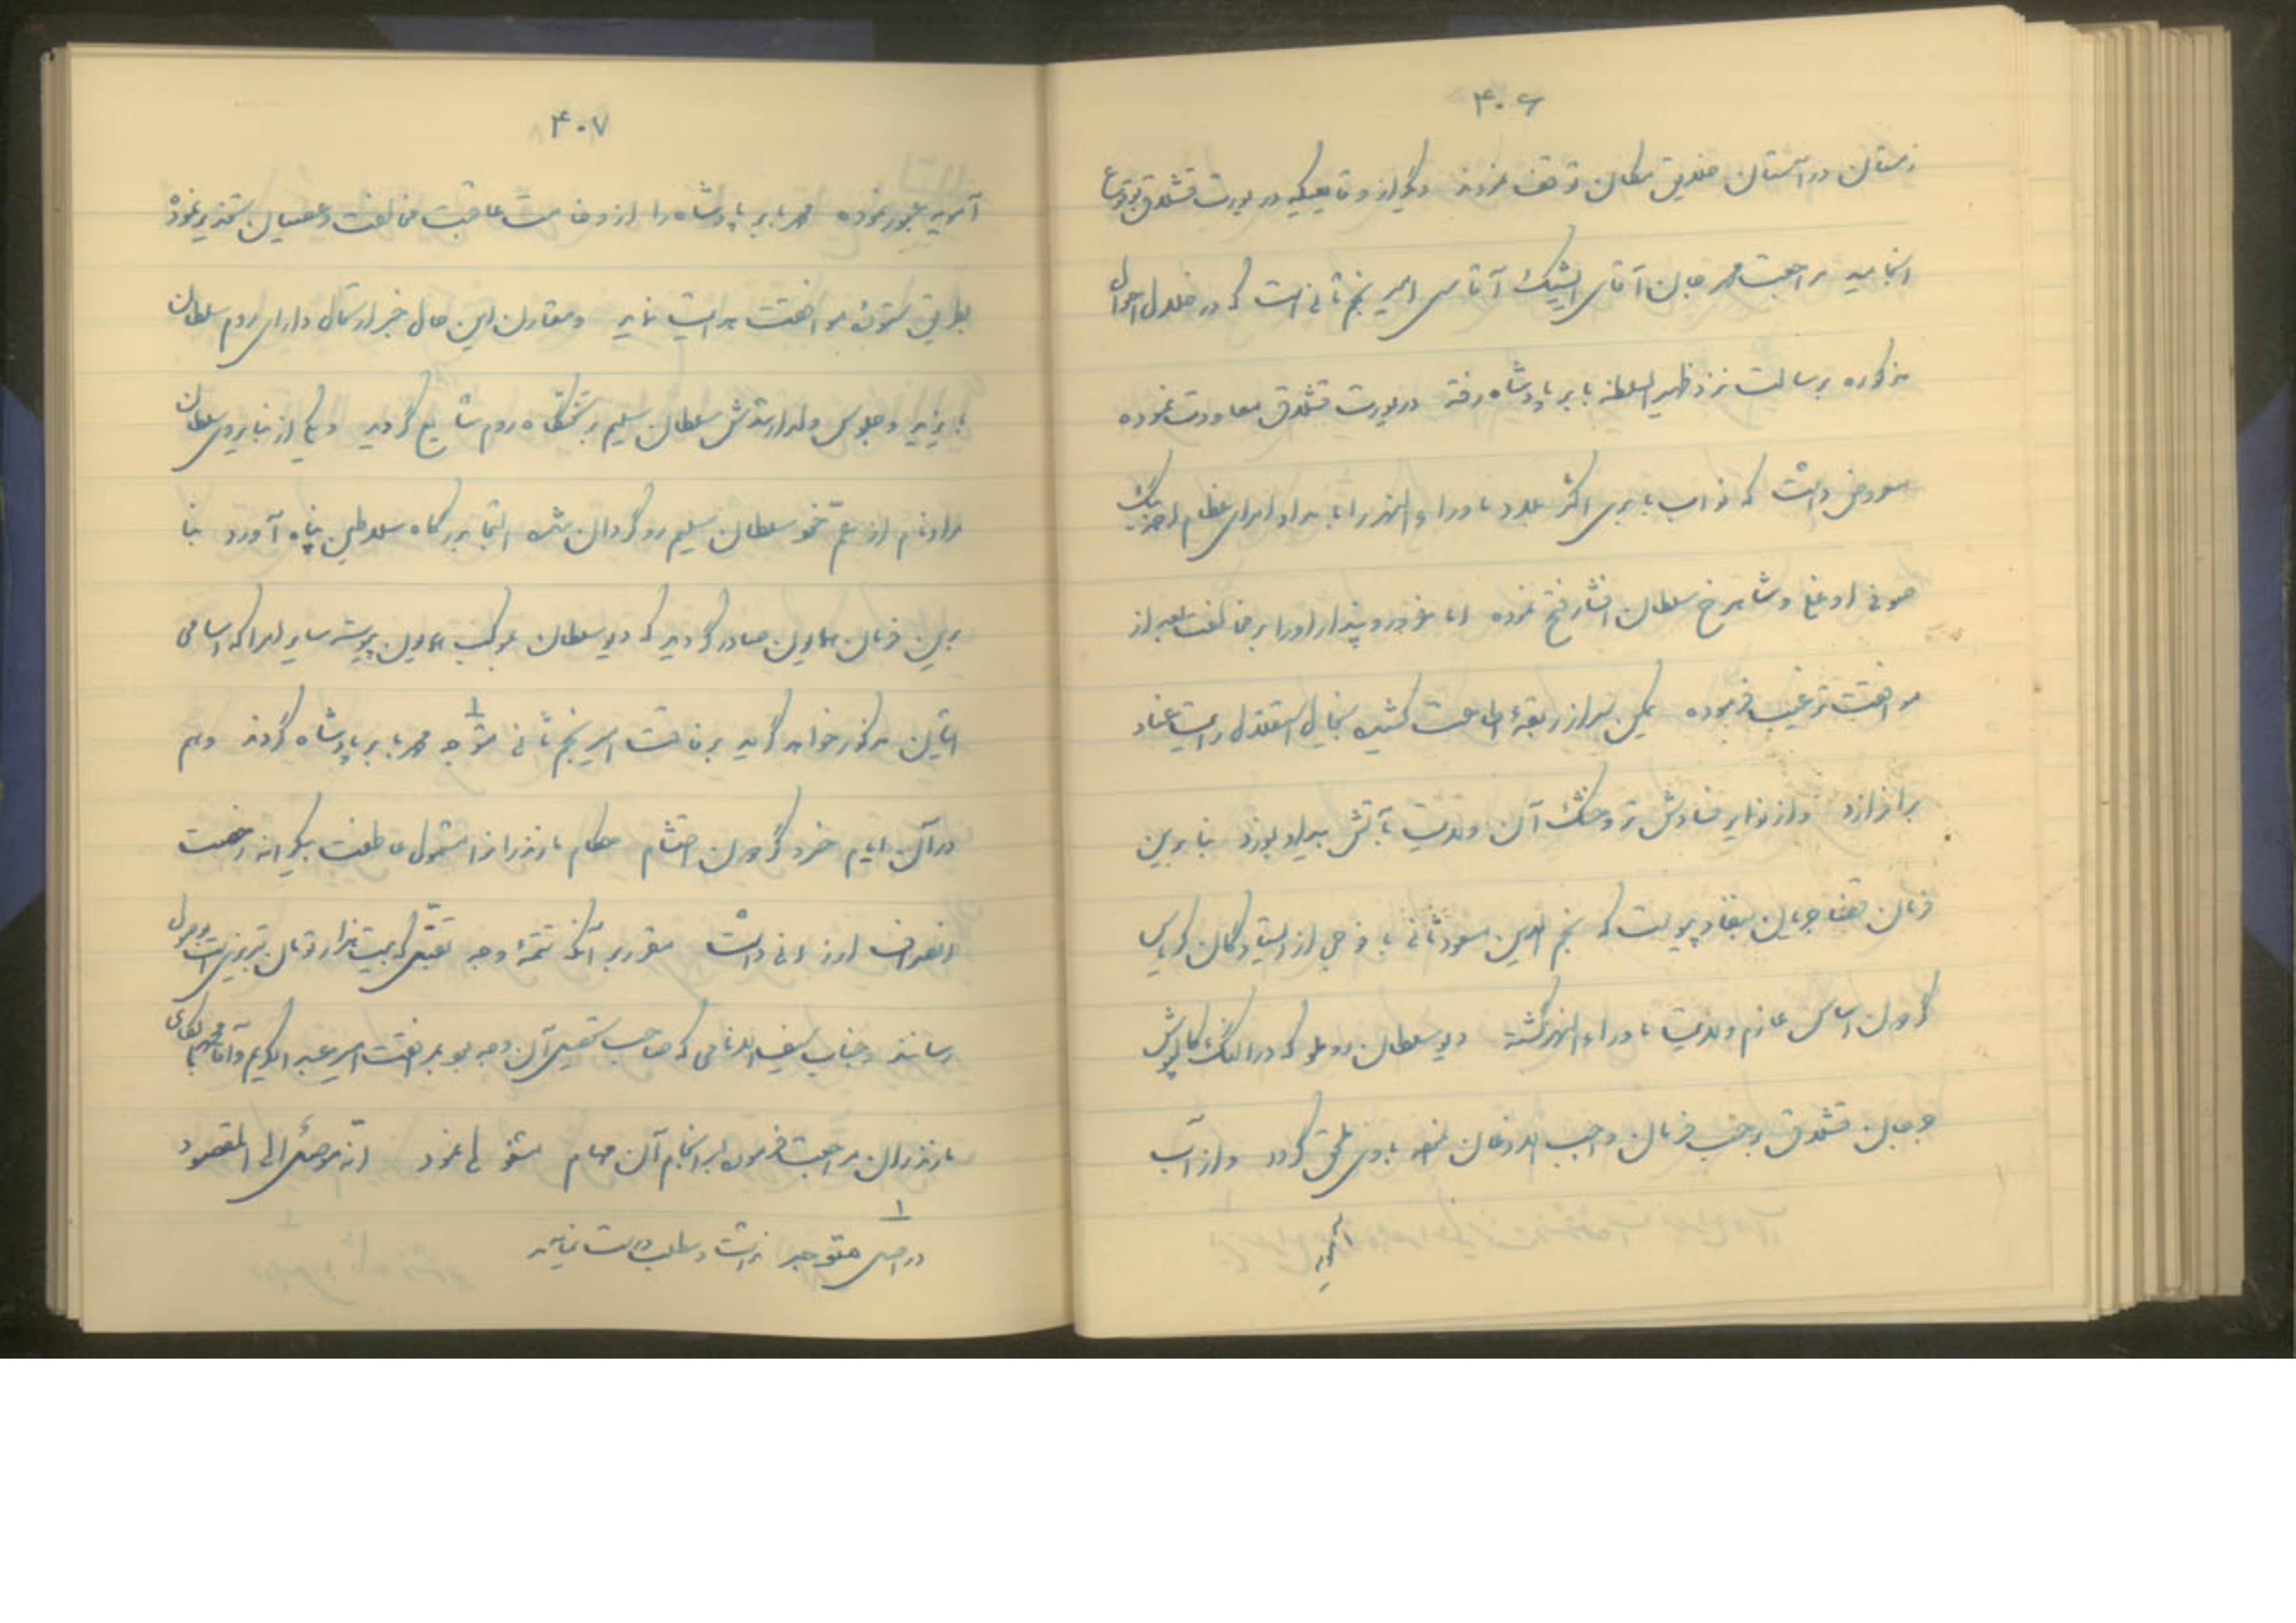 ۴۰۶
زمستان در آستان خلایق مکان توقف نمودند دیگر از وقایعیکه در یورت قشلاق بوقوع
انجامید مراجعت محمد جان آقای ایشیک آقاسی امیر نجم ثانی است که در خلال احوال
مذکوره برسالت نزد ظهیر السلطنه بابر پادشاه رفته در یورت قشلاق معاودت نموده
معروض داشت که نواب بابری اکثر بلاد ماوراء النهر را بامداد امرای عظام احمد بیک
صوفی اوغلی و شاهرخ سلطان افشار فتح نموده اما غرور و پندار او را بر مخالفت بعد از
موافقت ترغیب فرموده یمکن سر از ربقهٔ اطاعت کشیده بخیال استقلال رایت عناد
برافرازد و از نوایر فسادش تر و خشک آن ولایت بآتش بیداد بسوزد بنا برین
فرمان قضا جریان بنفاذ پیوست که نجم الدین مسعود ثانی با فوجی از ایستادگان کریاس
گردون اساس عازم ولایت ماوراء النهر گشته دیو سلطان روملو که در النگ کالپوش
و جان قشلاق برحسب فرمان واجب الاذعان نموده بوی ملحق گردد و از آب
آمویه
۴۰۷
آمویه عبور نموده محمد بابر پادشاه را از وخامت عاقبت مخالفت و عصیان تحذیر نموده
بطریق ستودهٔ موافقت هدایت نماید و مقارن این حال خبر ارتحال دارای روم سلطان
بایزید و جلوس ولد ارشدش سلطان سلیم بر تختگاه روم شایع گردید و یکی از نبایر وی سلطان
مراد نام از عم خود سلطان سلیم روگردان شده التجا بدرگاه سلاطین پناه آورد بنا
برین فرمان همایون صادر گردید که دیو سلطان بموکب همایون پیوسته سایر امرا که اسامی
ایشان مذکور خواهد گردید برفاقت امیر نجم ثانی متوجه ۱ محمد بابر پادشاه گردند و هم
در آن ایام خسرو گردون احتشام حکام مازندرانرا مشمول عاطفت بیکرانه رخصت
انصراف ارزانی داشت مقرر بر آنکه تتمهٔ وجه تقبل که بیست هزار تومان تبریزی است وصول
رسانند و جناب سیف الانامی که صاحب تحصیل آن وجه بود بمرافقت امیر عبد الکریم و آقا محمد بجانب
مازندران مراجعت فرموده بسرانجام آن مهام مشغولی نمود انه موصل الی المقصود
۱
در اصل متوجه نداشت و مطلب درست نمی‌آید